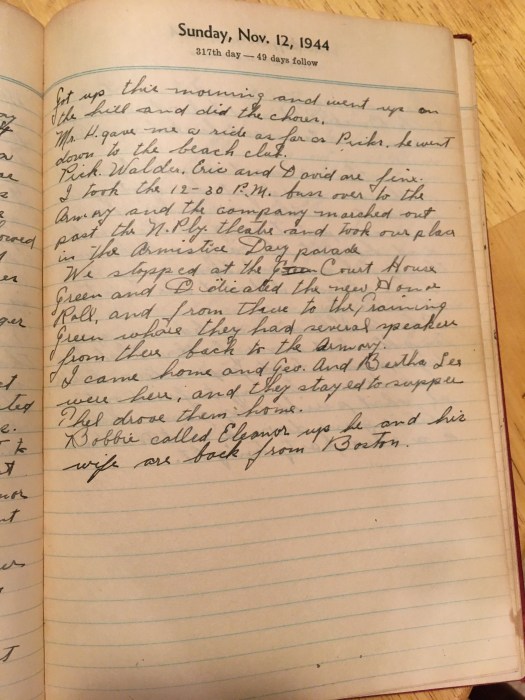 Sunday, Nov. 12, 1944
317th day — 49 days follow
Got up this morning and went up on
the hill and did the chores.
Mr. H. gave me a ride as far as he went
down to the beach club.
Pick. Walder, Eric and David are fine.
I took the 12-30 P.M. buss over to the
Armory and the company marched out
past the N. Ply. theatre and took our place
in the Armistice Day parade
We stopped at the Court House
Green and Dedicated the new Honor
Roll, and from there to the Training
Green where they had several speakers
from there back to the Armory.
I came home and Geo. And Bertha Lee
were here, and they stayed to supper
Phel drove them home.
Bobbie called Eleanor up he and his
wife are back from Boston.